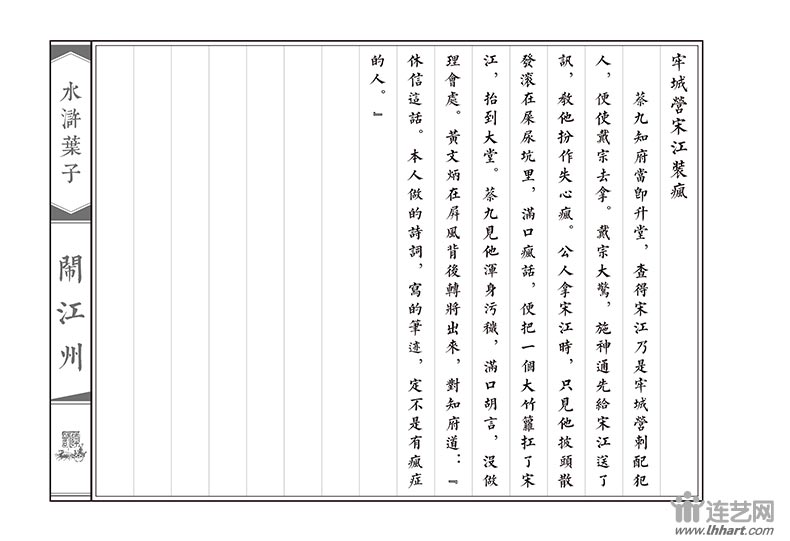 牢城營宋江裝瘋
蔡九知府當即升堂，查得宋江乃是牢城營刺配犯
人，便使戴宗去拿。戴宗大驚，施神通先給宋江送了
訊，教他扮作失心瘋。公人拿宋江時，只見他披頭散
發滾在屎尿坑里，滿口瘋話，便把一個大竹籮扛了宋
江，抬到大堂。蔡九見他渾身污穢，滿口胡言，沒做
理會處。黃文炳在屏風背後轉將出來，對知府道：『
休信這話。本人做的詩詞，寫的筆迹，定不是有瘋症
的人。』
水滸葉子
鬧江州
连艺网
www.lhhart.com